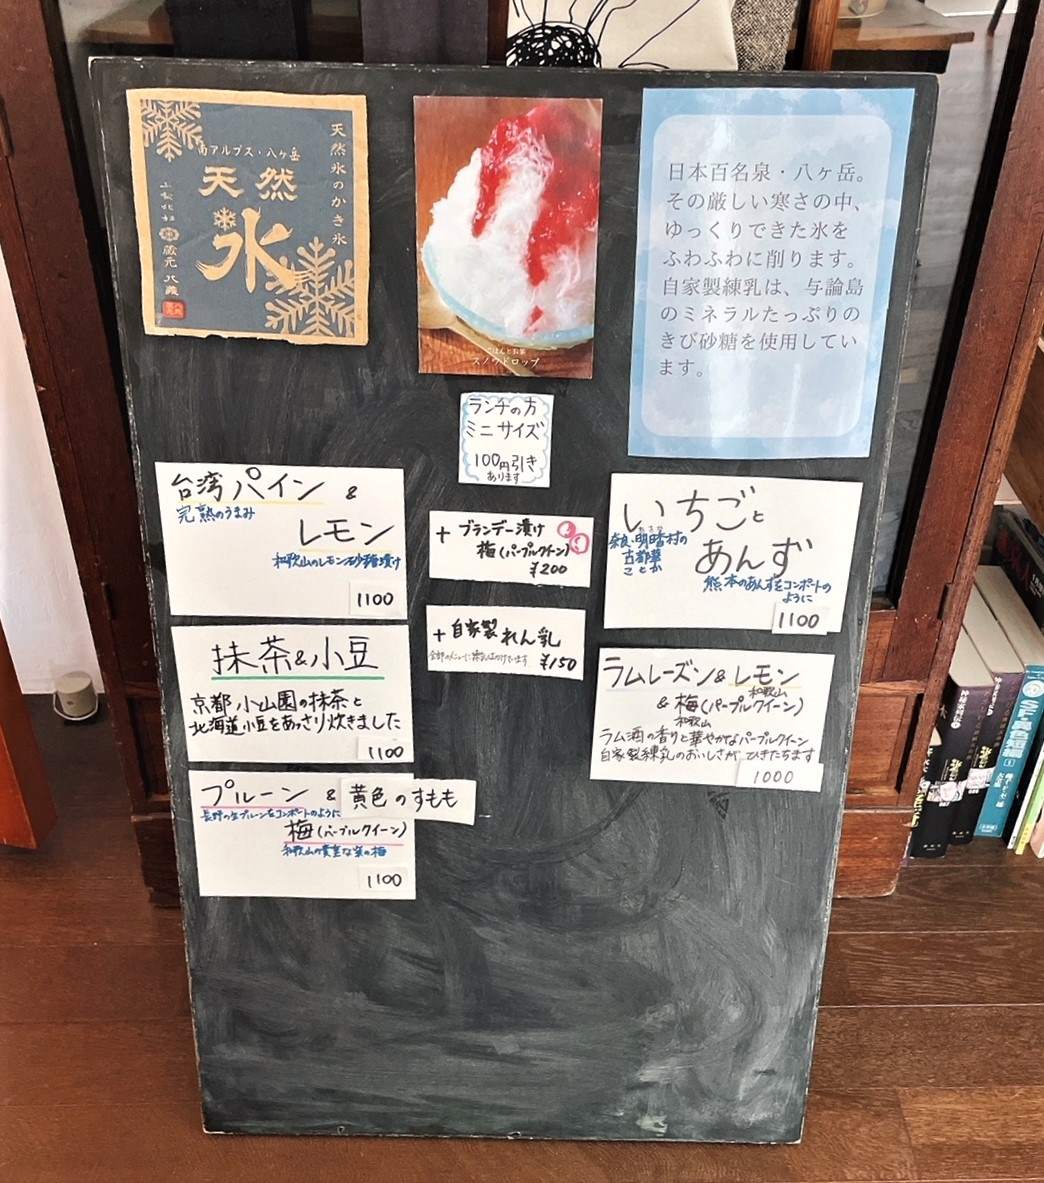 天然氷のかき氷
南アルプス・八ヶ岳
天然
氷
蔵元 八義
ごはんとお茶
スノウドロップ
日本百名泉・八ヶ岳。
その厳しい寒さの中、
ゆっくりできた氷を
ふわふわに削ります。
自家製練乳は、与論島
のミネラルたっぷりの
きび砂糖を使用してい
ます。
ランチの方
ミニサイズ
100円引き
あります
台湾パイン &
完熟のうまみ
レモン
和歌山のレモン砂糖漬け
1100
抹茶&小豆
京都 小山園の抹茶と
北海道小豆をあっさり炊きました
1100
プルーン & 黄色のすもも
長野の生プルーンをコンポートのように
梅(パープルクイーン)
和歌山の貴重な紫の梅
1100
+ ブランデー漬け
梅(パープルクイン)
¥200
+ 自家製れん乳
¥150
いちごと
奈良・明日香村の
あすか
古都華
ことか
あんず
熊本のあんずをコンポートの
ように
1100
ラムレーズン&レモン
和歌山
& 梅(パープルクイーン)
和歌山
ラム酒の香りと華やかなパープルクイーン
自家製練乳のおいしさが ひきたちます
1000
SF・異色短編